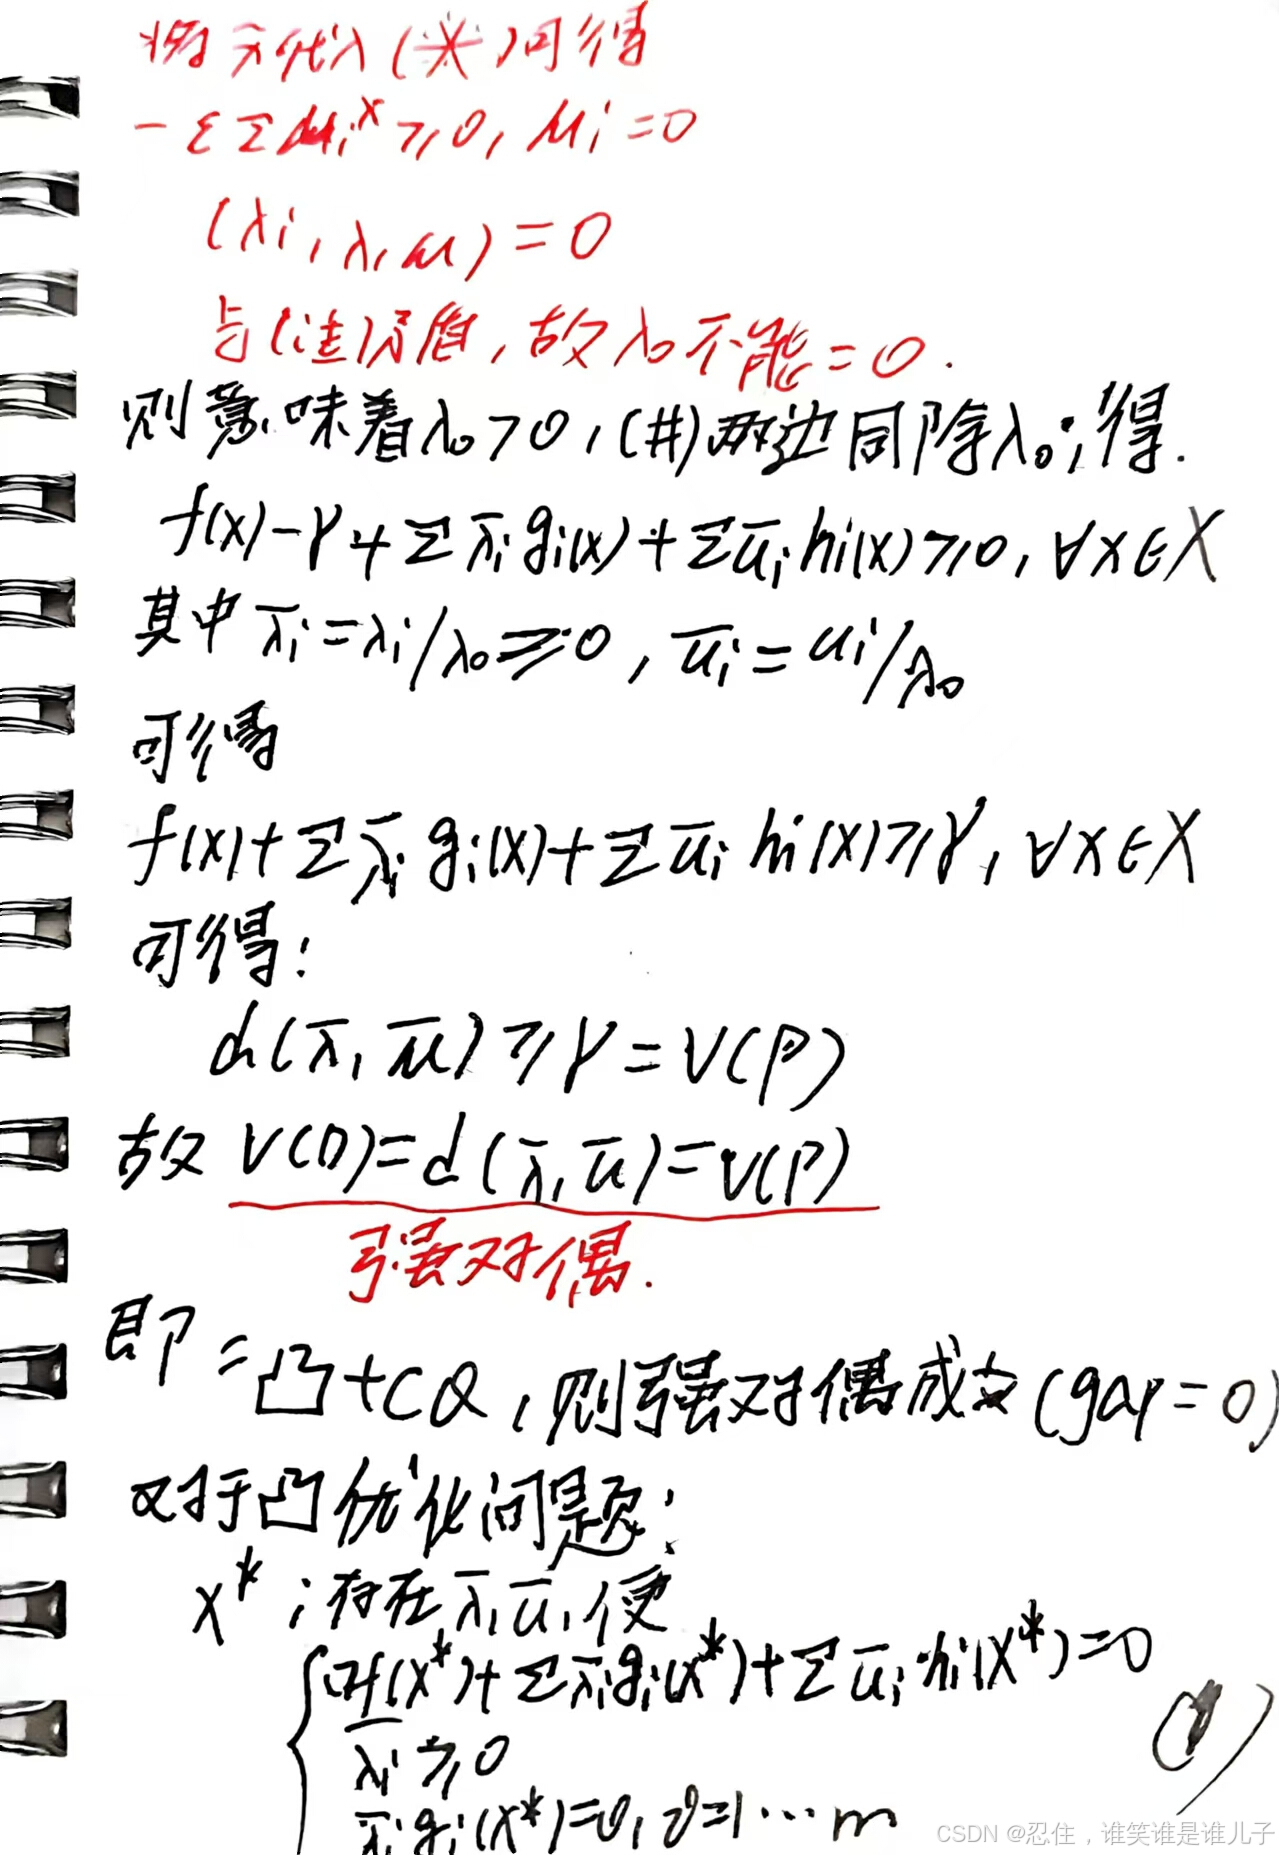 将x̄代入(*)可得
-εΣμi² ≥0, μi=0
(λi, λ, μ)=0
与(注)矛盾,故λ₀不能=0.
则意味着λ₀>0,(#)两边同除λ₀;得.
f(x)-γ+Σλ̄i gi(x)+Σūi hi(x)≥0, ∀x∈X
其中 λ̄i=λi/λ₀≥0, ūi=ui/λ₀
可得
f(x)+Σλ̄i gi(x)+Σūi hi(x)≥γ, ∀x∈X
可得:
d(λ̄, μ̄)≥γ=V(P)
故 V(D)=d(λ̄, ū)=V(P)
强对偶.
即:凸+CQ,则强对偶成立(gap=0)
对于凸优化问题:
x*;存在λ̄,ū,使
∇f(x*)+Σλ̄i gi(x*)+Σūi hi(x*)=0
λ̄i≥0
λ̄i gi(x*)=0, i=1…m
CSDN @忍住,谁笑谁是谁儿子